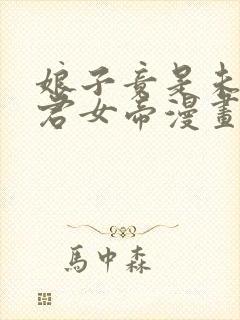 娘子竟是未
君女帝漫畫
馬中森